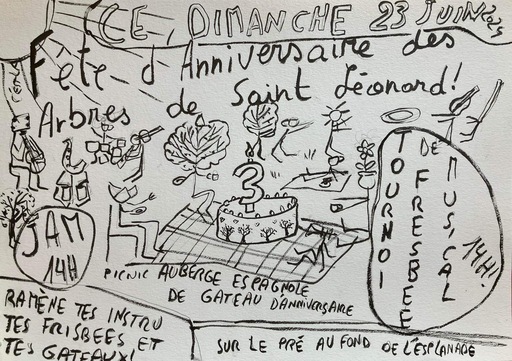 CE DIMANCHE 23 JUIN 2024
Fete d'Anniversaire des
Arbres de Saint Léonard!
3
JAM
14H
TOURNOI
DE FRESBEE
MUSICAL
14H!
PICNIC AUBERGE ESPAGNOLE
DE GATEAU D'ANNIVERSAIRE
RAMÈNE TES INSTRU
TES FRISBEES ET
TES GATEAUX!
SUR LE PRÉ AU FOND DE L'ESPLANADE